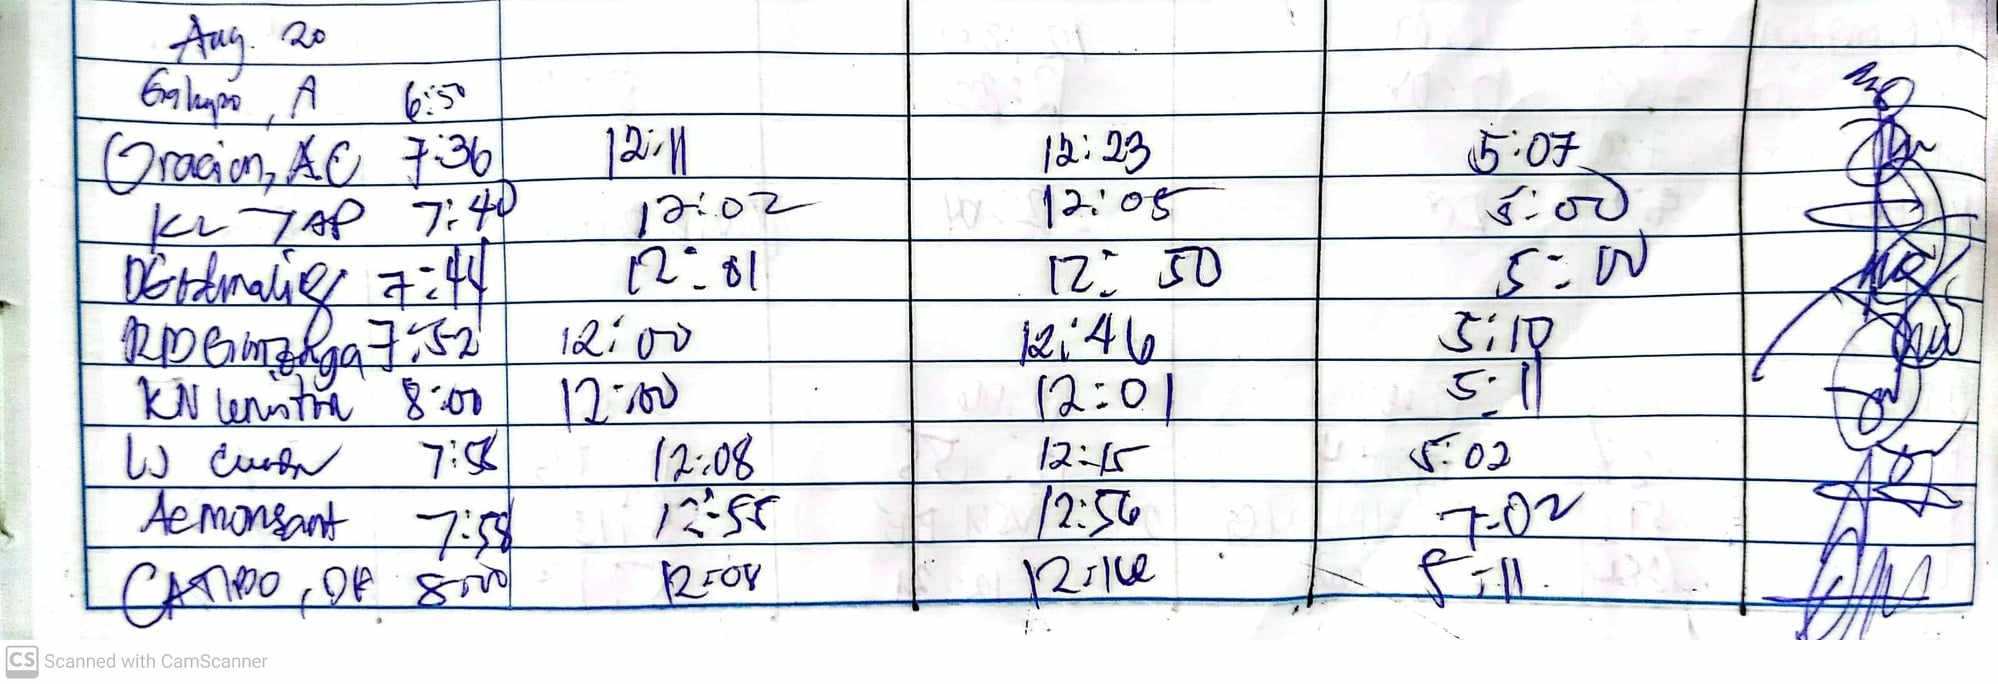 Aug. 20
A 6:50
Oracion, AC 7:36 12:11 12:23 5:07
KL YAP 7:40 12:02 12:05 5:00
7:44 12:01 12:50 5:00
RD 7:52 12:00 12:46 5:10
KN 8:00 12:00 12:01 5:11
W 7:58 12:08 12:15 5:02
AC Monsant 7:58 12:55 12:56 7:02
8:00 12:08 12:16 5:11
CS Scanned with CamScanner